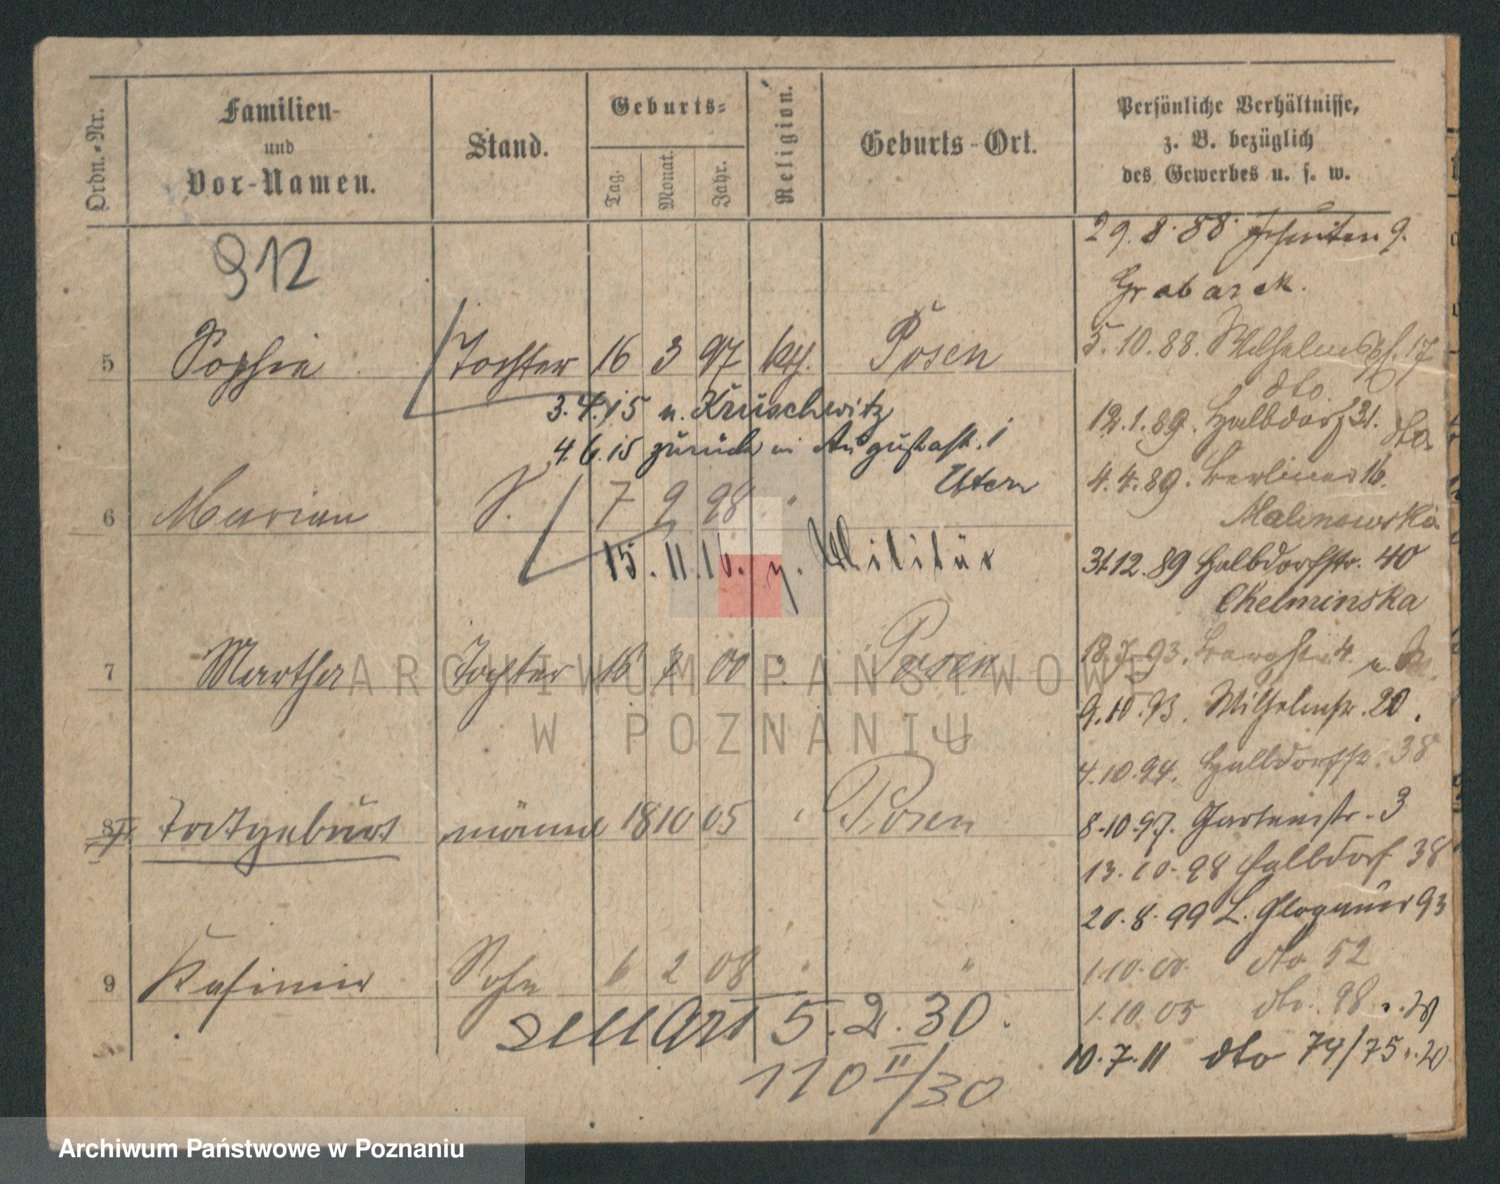 Ordn.-Nr.
Familien-
und
Vor-Namen.
Stand.
Geburts-
Tag.
Monat.
Jahr.
Religion.
Geburts-Ort.
Persönliche Verhältnisse,
z. B. bezüglich
des Gewerbes u. s. w.
912
29.8.88 9.
Grabarek.
5 Sophie Tochter 16 3 97 kth. Posen
5.10.88. Wilhelmspl. 17
dto
3.4.15 n. Kruschwitz
12.1.89. Halbdorf 31. dto
4.6.15 zurück Augustastr. 1
Eltern
4.4.89. Berliner 16.
6 Marian S. 7 9 98 "
Malinowska
15.11.16. z. Militär
31.12.89 Halbdorfstr. 40
Chelminska
7 Martha Tochter 18 7 00 " Posen
18.7.93. 4.
9.10.93. Wilhelmstr. 20.
4.10.94. Halbdorfstr. 38
8 Todtgeburt männl 18 10 05 " Posen
8.10.97. Gartenstr. 3
13.10.98 Halbdorf 38
20.8.99 L. Glogauer 93
9 Kasimir Sohn 6 2 08 " "
1.10.00. dto 52
1.10.05 dto. 98
5.2.30.
10.7.11 dto 74/75
110 II/30
ARCHIWUM PAŃSTWOWE
W POZNANIU
Archiwum Państwowe w Poznaniu